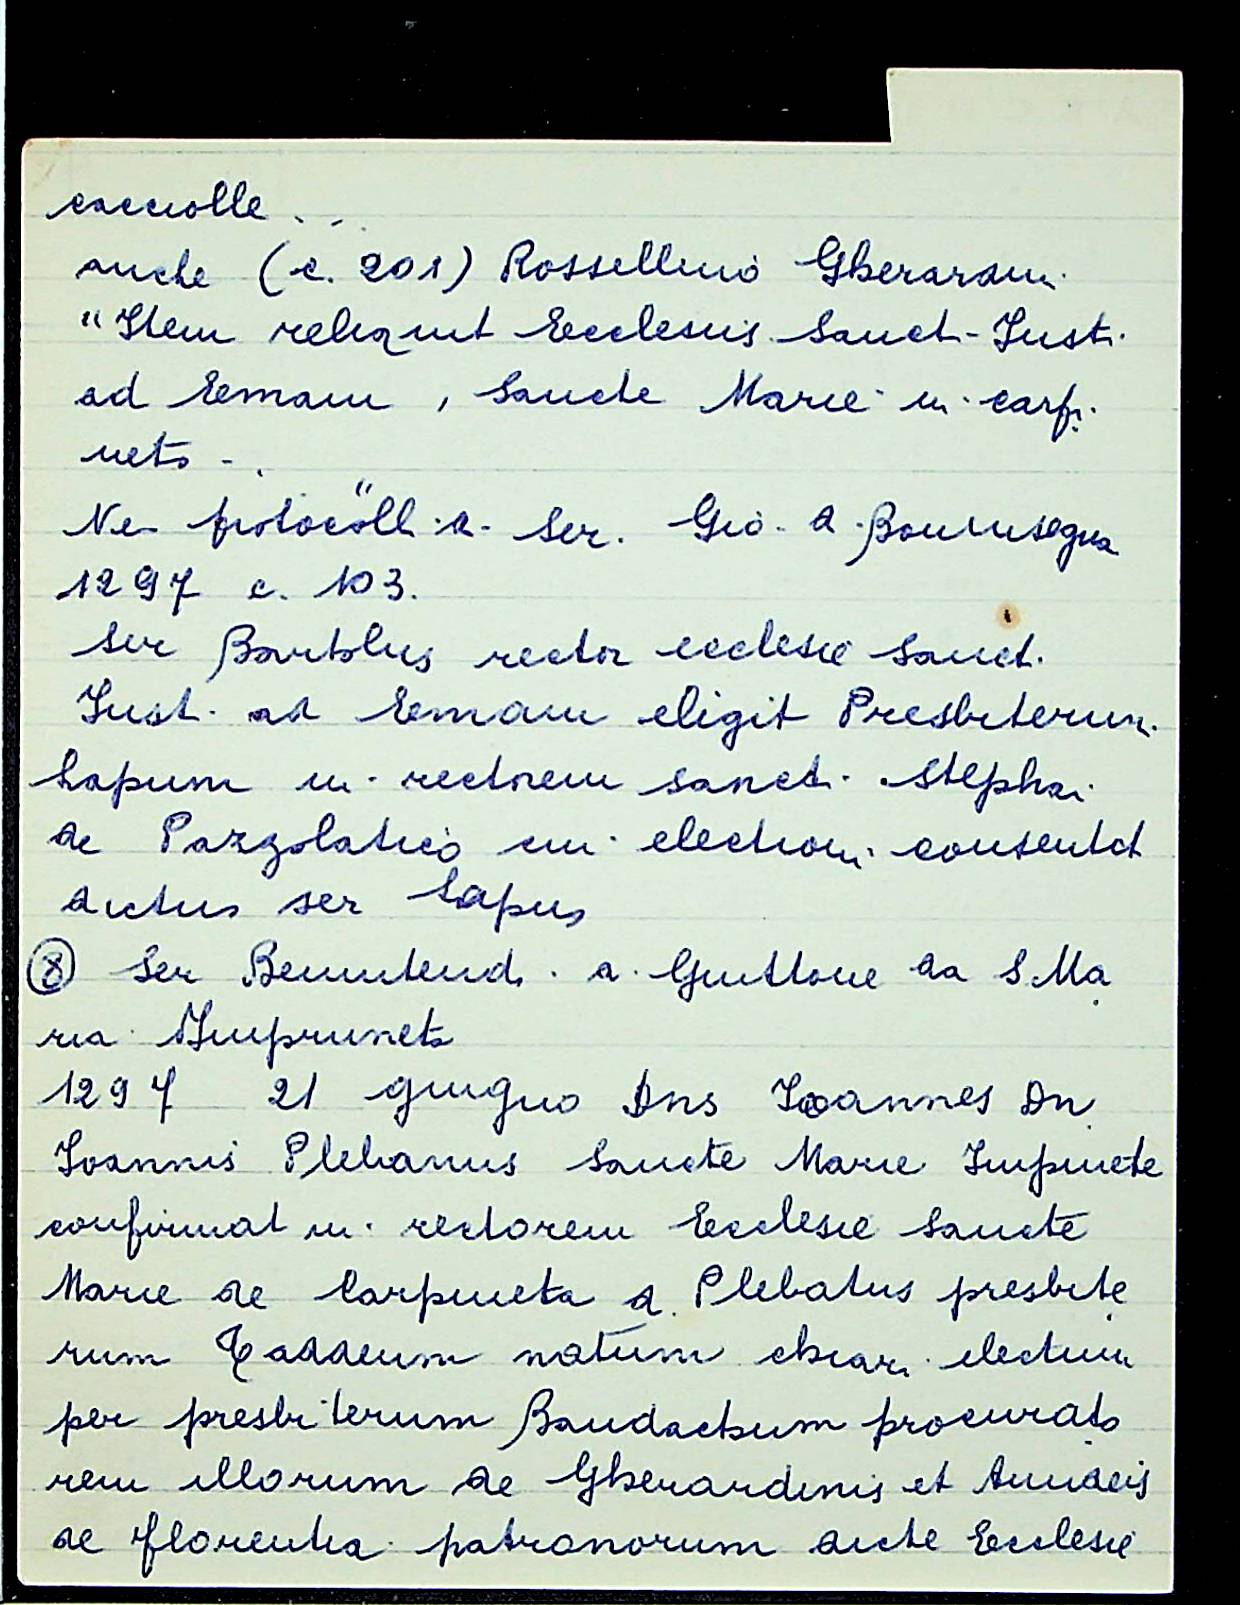 cacciolle...
anche (c. 201) Rossellino Gherardini
"Item reliquit Ecclesiis Sancti Justi
ad Emam, Sancte Marie in carpi
neto -."
Nei protocolli di Ser. Gio. di Boninsegna
1297 c. 103.
Ser Bartolus rector ecclesie Sancti
Justi ad Emam eligit Presbiterum
Lapum in rectorem sancti Stephai
de Pazzolatico cui electioni consentit
dictus ser Lapus
⑧ Ser Benintendi di Guittone da S. Ma
ria Impruneta
1297 21 giugno Dns Ioannes Dni
Ioannis Plebanus Sancte Marie Impinete
confirmat in rectorem Ecclesie Sancte
Marie de Carpineta d. Plebatus presbite
rum Taddeum natum chiari electum
per presbiterum Baudachum procurato
rem illorum de Gherardinis et Amideis
de florentia patronorum dicte Ecclesie